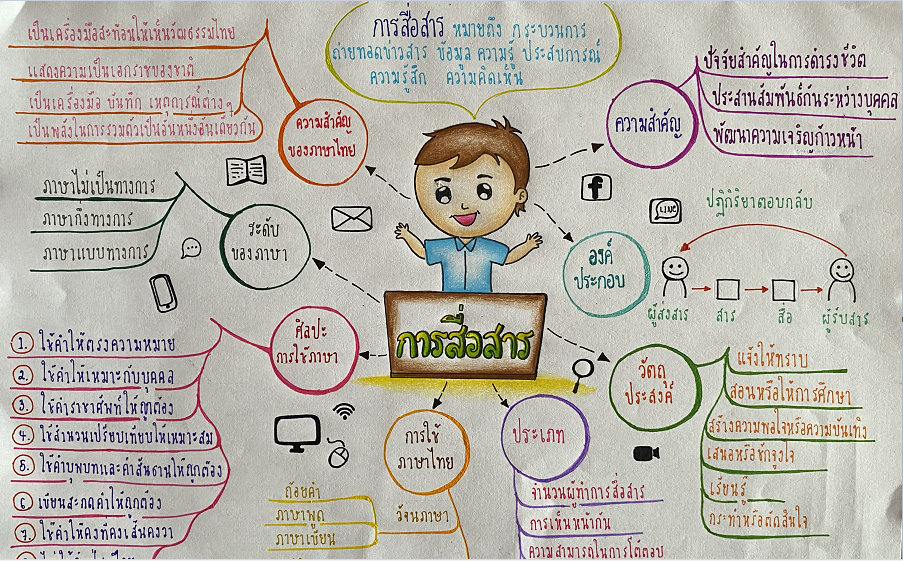 การสื่อสาร หมายถึง กระบวนการ
ถ่ายทอดข่าวสาร ข้อมูล ความรู้ ประสบการณ์
ความรู้สึก ความคิดเห็น
เป็นเครื่องมือสะท้อนให้เห็นวัฒธรรมไทย
แสดงความเป็นเอกราชของชาติ
เป็นเครื่องมือ บันทึก เหตุการณ์ต่างๆ
เป็นพลังในการรวมตัวเป็นอันหนึ่งอันเดียวกัน
ความสำคัญ
ของภาษาไทย
ความสำคัญ
ปัจจัยสำคัญในการดำรงชีวิต
ประสานสัมพันธ์กันระหว่างบุคคล
พัฒนาความเจริญก้าวหน้า
ภาษาไม่เป็นทางการ
ภาษากึ่งทางการ
ภาษาแบบทางการ
ระดับ
ของภาษา
f
LINE
องค์
ประกอบ
ปฏิกิริยาตอบกลับ
ผู้ส่งสาร
สาร
สื่อ
ผู้รับสาร
การสื่อสาร
ศิลปะ
การใช้ภาษา
1. ใช้คำให้ตรงความหมาย
2. ใช้คำให้เหมาะกับบุคคล
3. ใช้คำราชาศัพท์ให้ถูกต้อง
4. ใช้สำนวนเปรียบเทียบให้เหมาะสม
5. ใช้คำบุพบทและคำสันธานให้ถูกต้อง
6 เขียนสะกดคำให้ถูกต้อง
7. ใช้คำให้คงที่คงเส้นคงวา
การใช้
ภาษาไทย
วัจนภาษา
ถ้อยคำ
ภาษาพูด
ภาษาเขียน
ประเภท
จำนวนผู้ทำการสื่อสาร
การเห็นหน้ากัน
ความสามารถในการโต้ตอบ
วัตถุ
ประสงค์
แจ้งให้ทราบ
สอนหรือให้การศึกษา
สร้างความพอใจหรือความบันเทิง
เสนอหรือชักจูงใจ
เรียนรู้
กระทำหรือตัดสินใจ